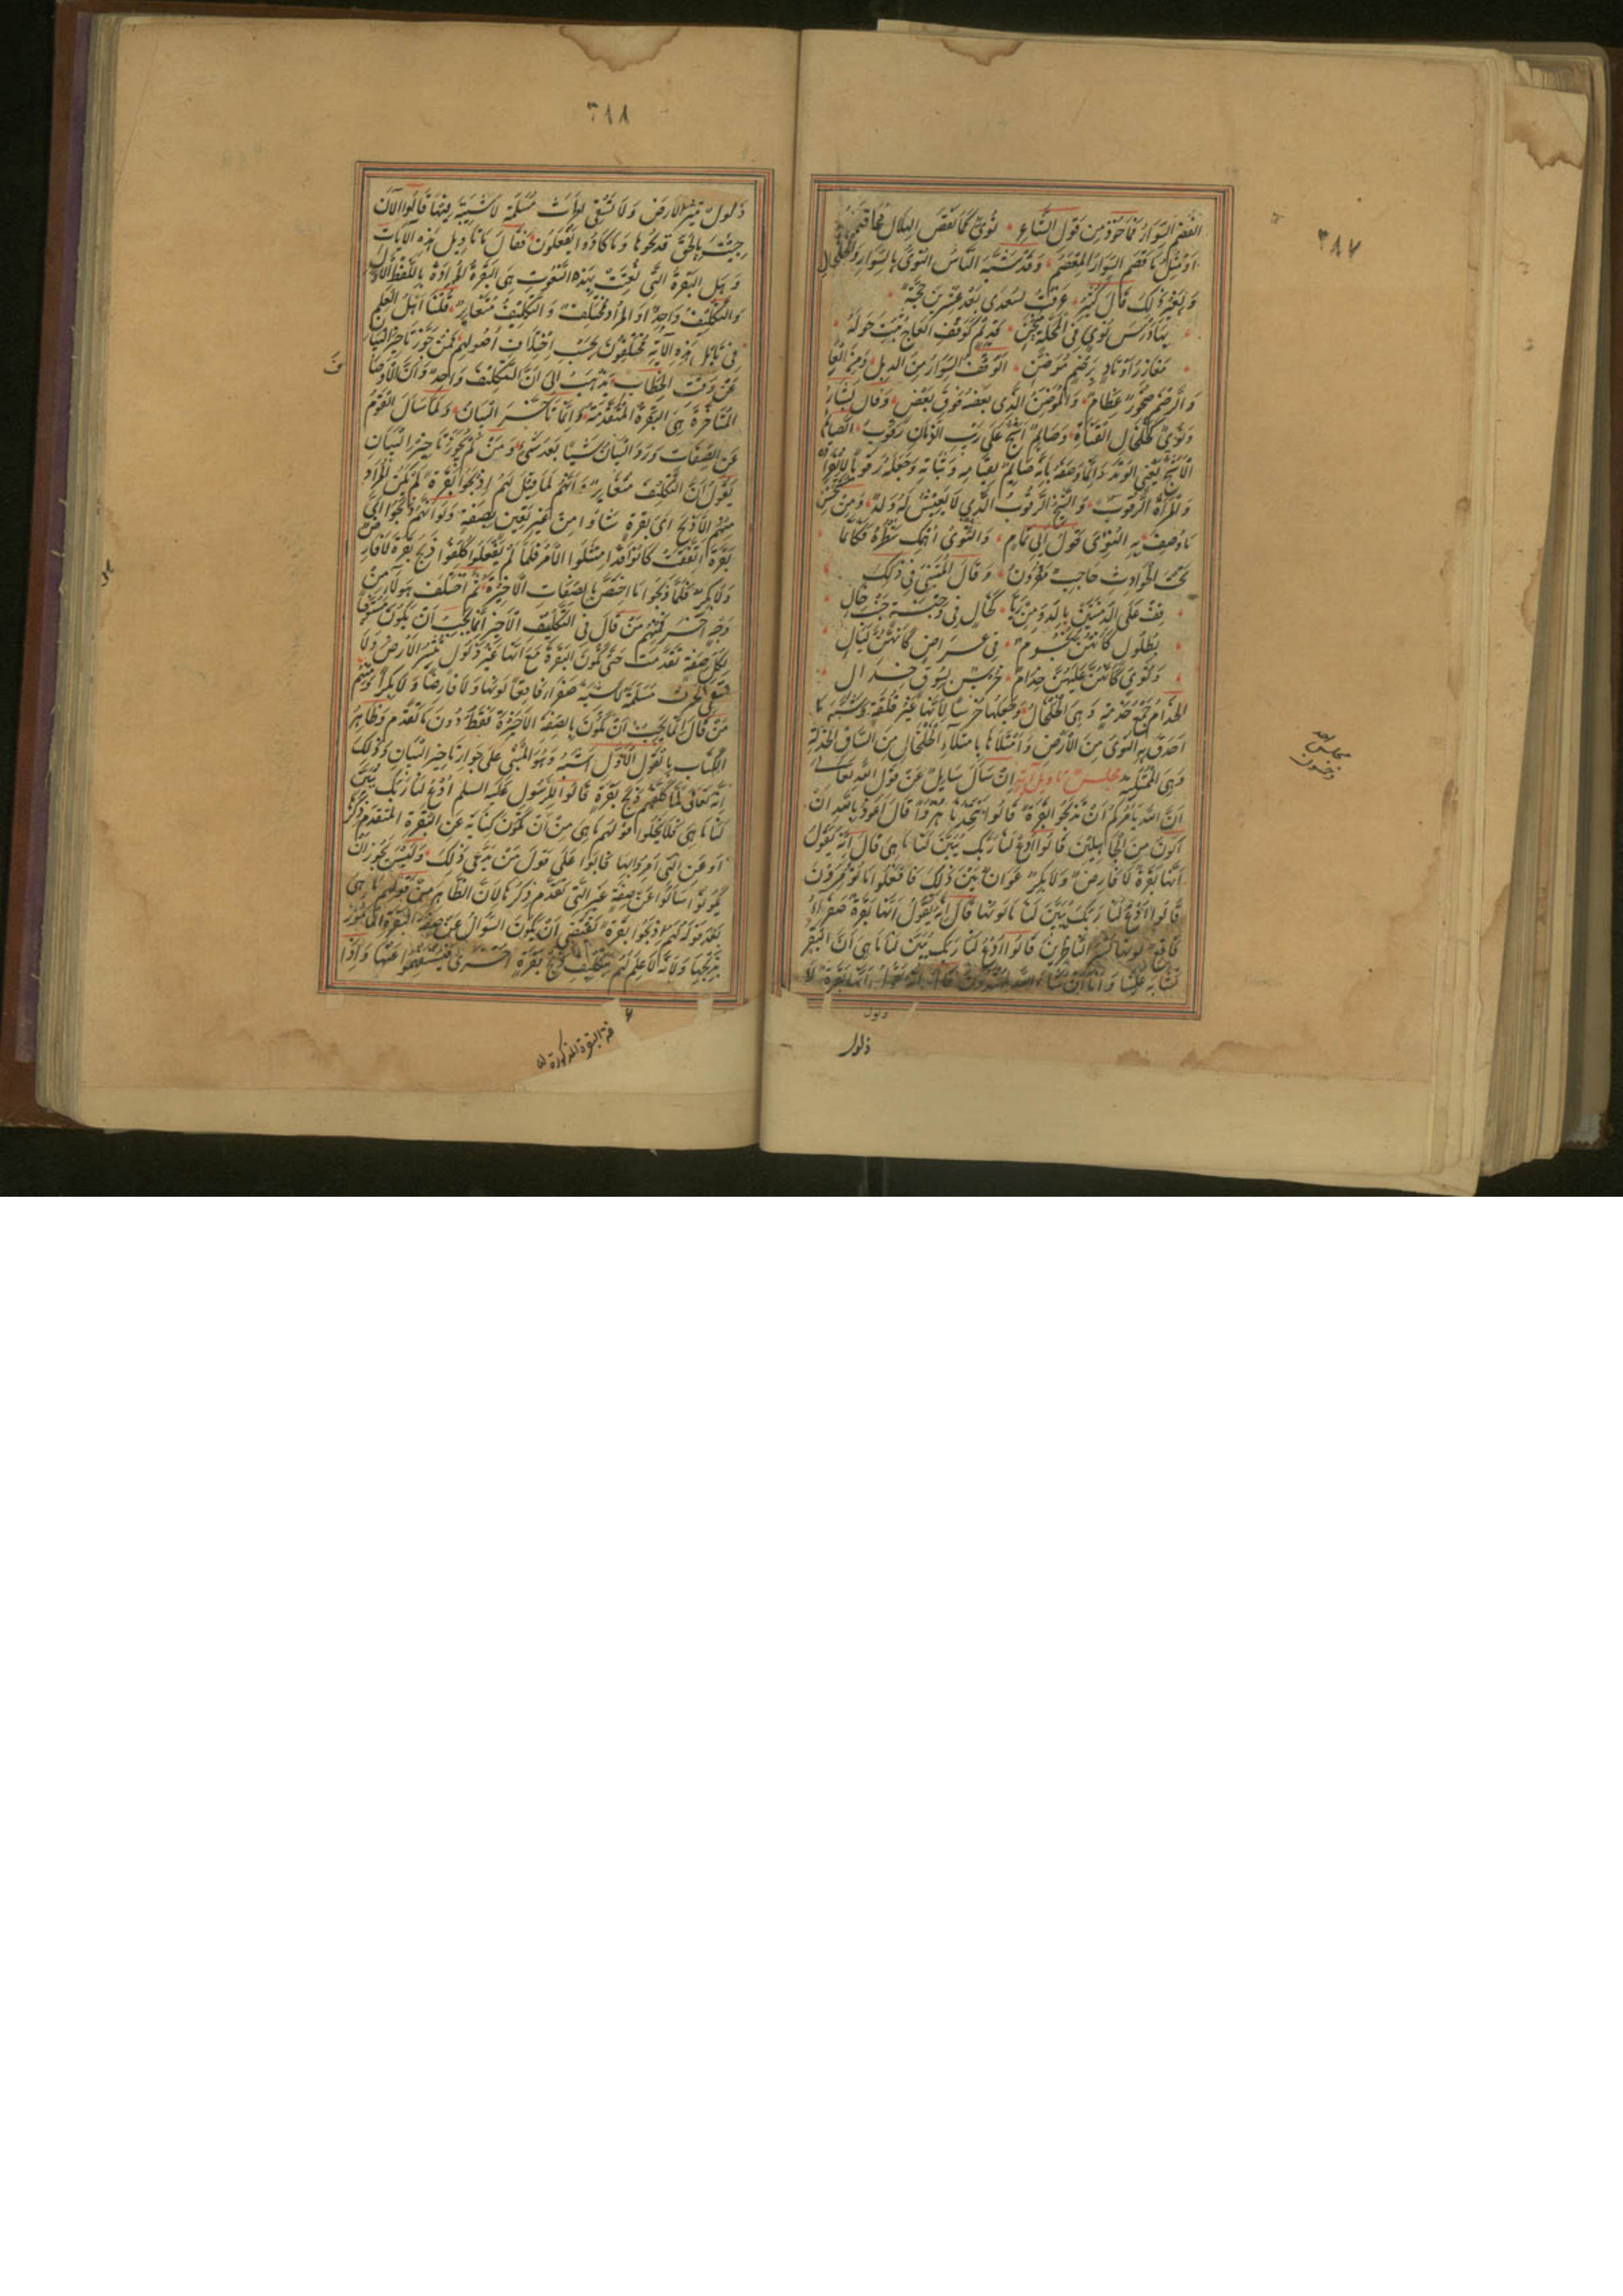 ٣٨٧
انفصم السوار فمأخوذ من قول الشاعر نؤي كما نقص الهلال محاقه
او مثل ما فصم السوار المعصم وقد شبه الناس النؤي بالسوار والخلخال
ولغير ذلك قال كثير عرفت لسعدى بعد عشرين حجة
بها درس نؤي في المحلة منحن قديم كوقف العاج ثبت حوله
مغارز اوتاد برضم موضن الوقف السوار من الذبل ومن العاج
والرضم صخور عظام والموضن الذي بعضه فوق بعض وقال بشار
ونؤي كخلخال الفتاة وصائم اشج على ريب الزمان رقوب الصائم
الاشج يعني الوتد وانما وصفه بانه صائم لقيامه وثباته وجعله رقوبا لانفراده
والمرأة الرقوب والشيخ الرقوب الذي لا يعيش له ولد ومن حسن
ما وصف به النؤي قول ابي تمام والنؤي اهمد شطره فكأنما
تحت الحوادث حاجب مقرون وقال المتنبي في ذلك
قف على الدمنتين بالدو من ريا كخال في وجنة جنب خال
بطلول كانهن نجوم في عراص كانهن ليال
ونؤي كانهن عليهن خدام خرس بسوق خدال
الخدام جمع خدمة وهي الخلخال وجعلها خرسا لانها غير قلقة وشبه ما
احدق به النؤي من الارض وامتلاءها بامتلاء الخلخال من الساق الخدلة
وهي الممتلية مجلس تاويل آية ان سأل سايل عن قول الله تعالى
ان الله يامركم ان تذبحوا بقرة قالوا اتتخذنا هزوا قال اعوذ بالله ان
اكون من الجاهلين قالوا ادع لنا ربك يبين لنا ما هي قال انه يقول
انها بقرة لا فارض ولا بكر عوان بين ذلك فافعلوا ما تؤمرون
قالوا ادع لنا ربك يبين لنا ما لونها قال انه يقول انها بقرة صفراء
فاقع لونها تسر الناظرين قالوا ادع لنا ربك يبين لنا ما هي ان البقر
تشابه علينا وانا ان شاء الله لمهتدون قال انه يقول انها بقرة لا
ذلول
ذلول
مجلس احد
وخمسون
٣٨٨
ذلول تثير الارض ولا تسقي الحرث مسلمة لا شية فيها قالوا الآن
جيت بالحق فذبحوها وما كادوا يفعلون فقال ما تاويل هذه الآيات
وهل البقرة التي نعتت بهذه النعوت هي البقرة المرادة باللفظ الاول
والتكليف واحد او المراد مختلف والتكليف متغاير قلنا اهل العلم
في تاويل هذه الآية مختلفون بحسب اختلاف اصولهم فمن جوز تاخير البيان
عن وقت الخطاب يذهب الى ان التكليف واحد وان الاوصاف
المتاخرة هي البقرة المتقدمة وانما تاخر البيان ولما سأل القوم
عن الصفات ورد البيان شيئا بعد شئ ومن لم يجوز تاخير البيان
يقول ان التكليف متغاير وانهم لما قيل لهم اذبحوا بقرة لم يكن المراد
منهم الا ذبح اي بقرة شاؤا من غير تعيين بصفة ولو انهم ذبحوا اي
بقرة اتفقت كانوا قد امتثلوا الامر فلما لم يفعلوا كلفوا ذبح بقرة لا فارض
ولا بكر فلما ذبحوا ما اختص بالصفات الاخيرة ثم اختلف هولاء من
وجه آخر فمنهم من قال في التكليف الاخير انما يجب ان يكون مستوفيا
لكل صفة تقدمت حتى تكون البقرة مع انها غير ذلول تثير الارض ولا
تسقي الحرث مسلمة لا شية صفراء فاقعا لونها ولا فارضا ولا بكرا ومنهم
من قال انما يجب ان تكون بالصفة الاخيرة فقط دون ما تقدم وظاهر
الكتاب بالقول الاول اشبه وهو المبني على جواز تاخير البيان وذلك
انه تعالى لما كلفهم ذبح بقرة قالوا للرسول عليه السلم ادع لنا ربك يبين
لنا ما هي فلا يخلوا قولهم ما هي من ان تكون كناية عن البقرة المتقدم ذكرها
او عن التي امروا بها ثانيا على قول من يدعي ذلك وليس يجوز ان
يكونوا سألوا عن صفة غير التي تقدم ذكرها لان الظاهر من قولهم ما هي
بعد قوله لهم اذبحوا بقرة تقتضي ان يكون السؤال عن صفة البقرة المامور
بذبحها ولانه لا علم لهم بتكليف ذبح بقرة اخرى فيستفهموا عنها واذا